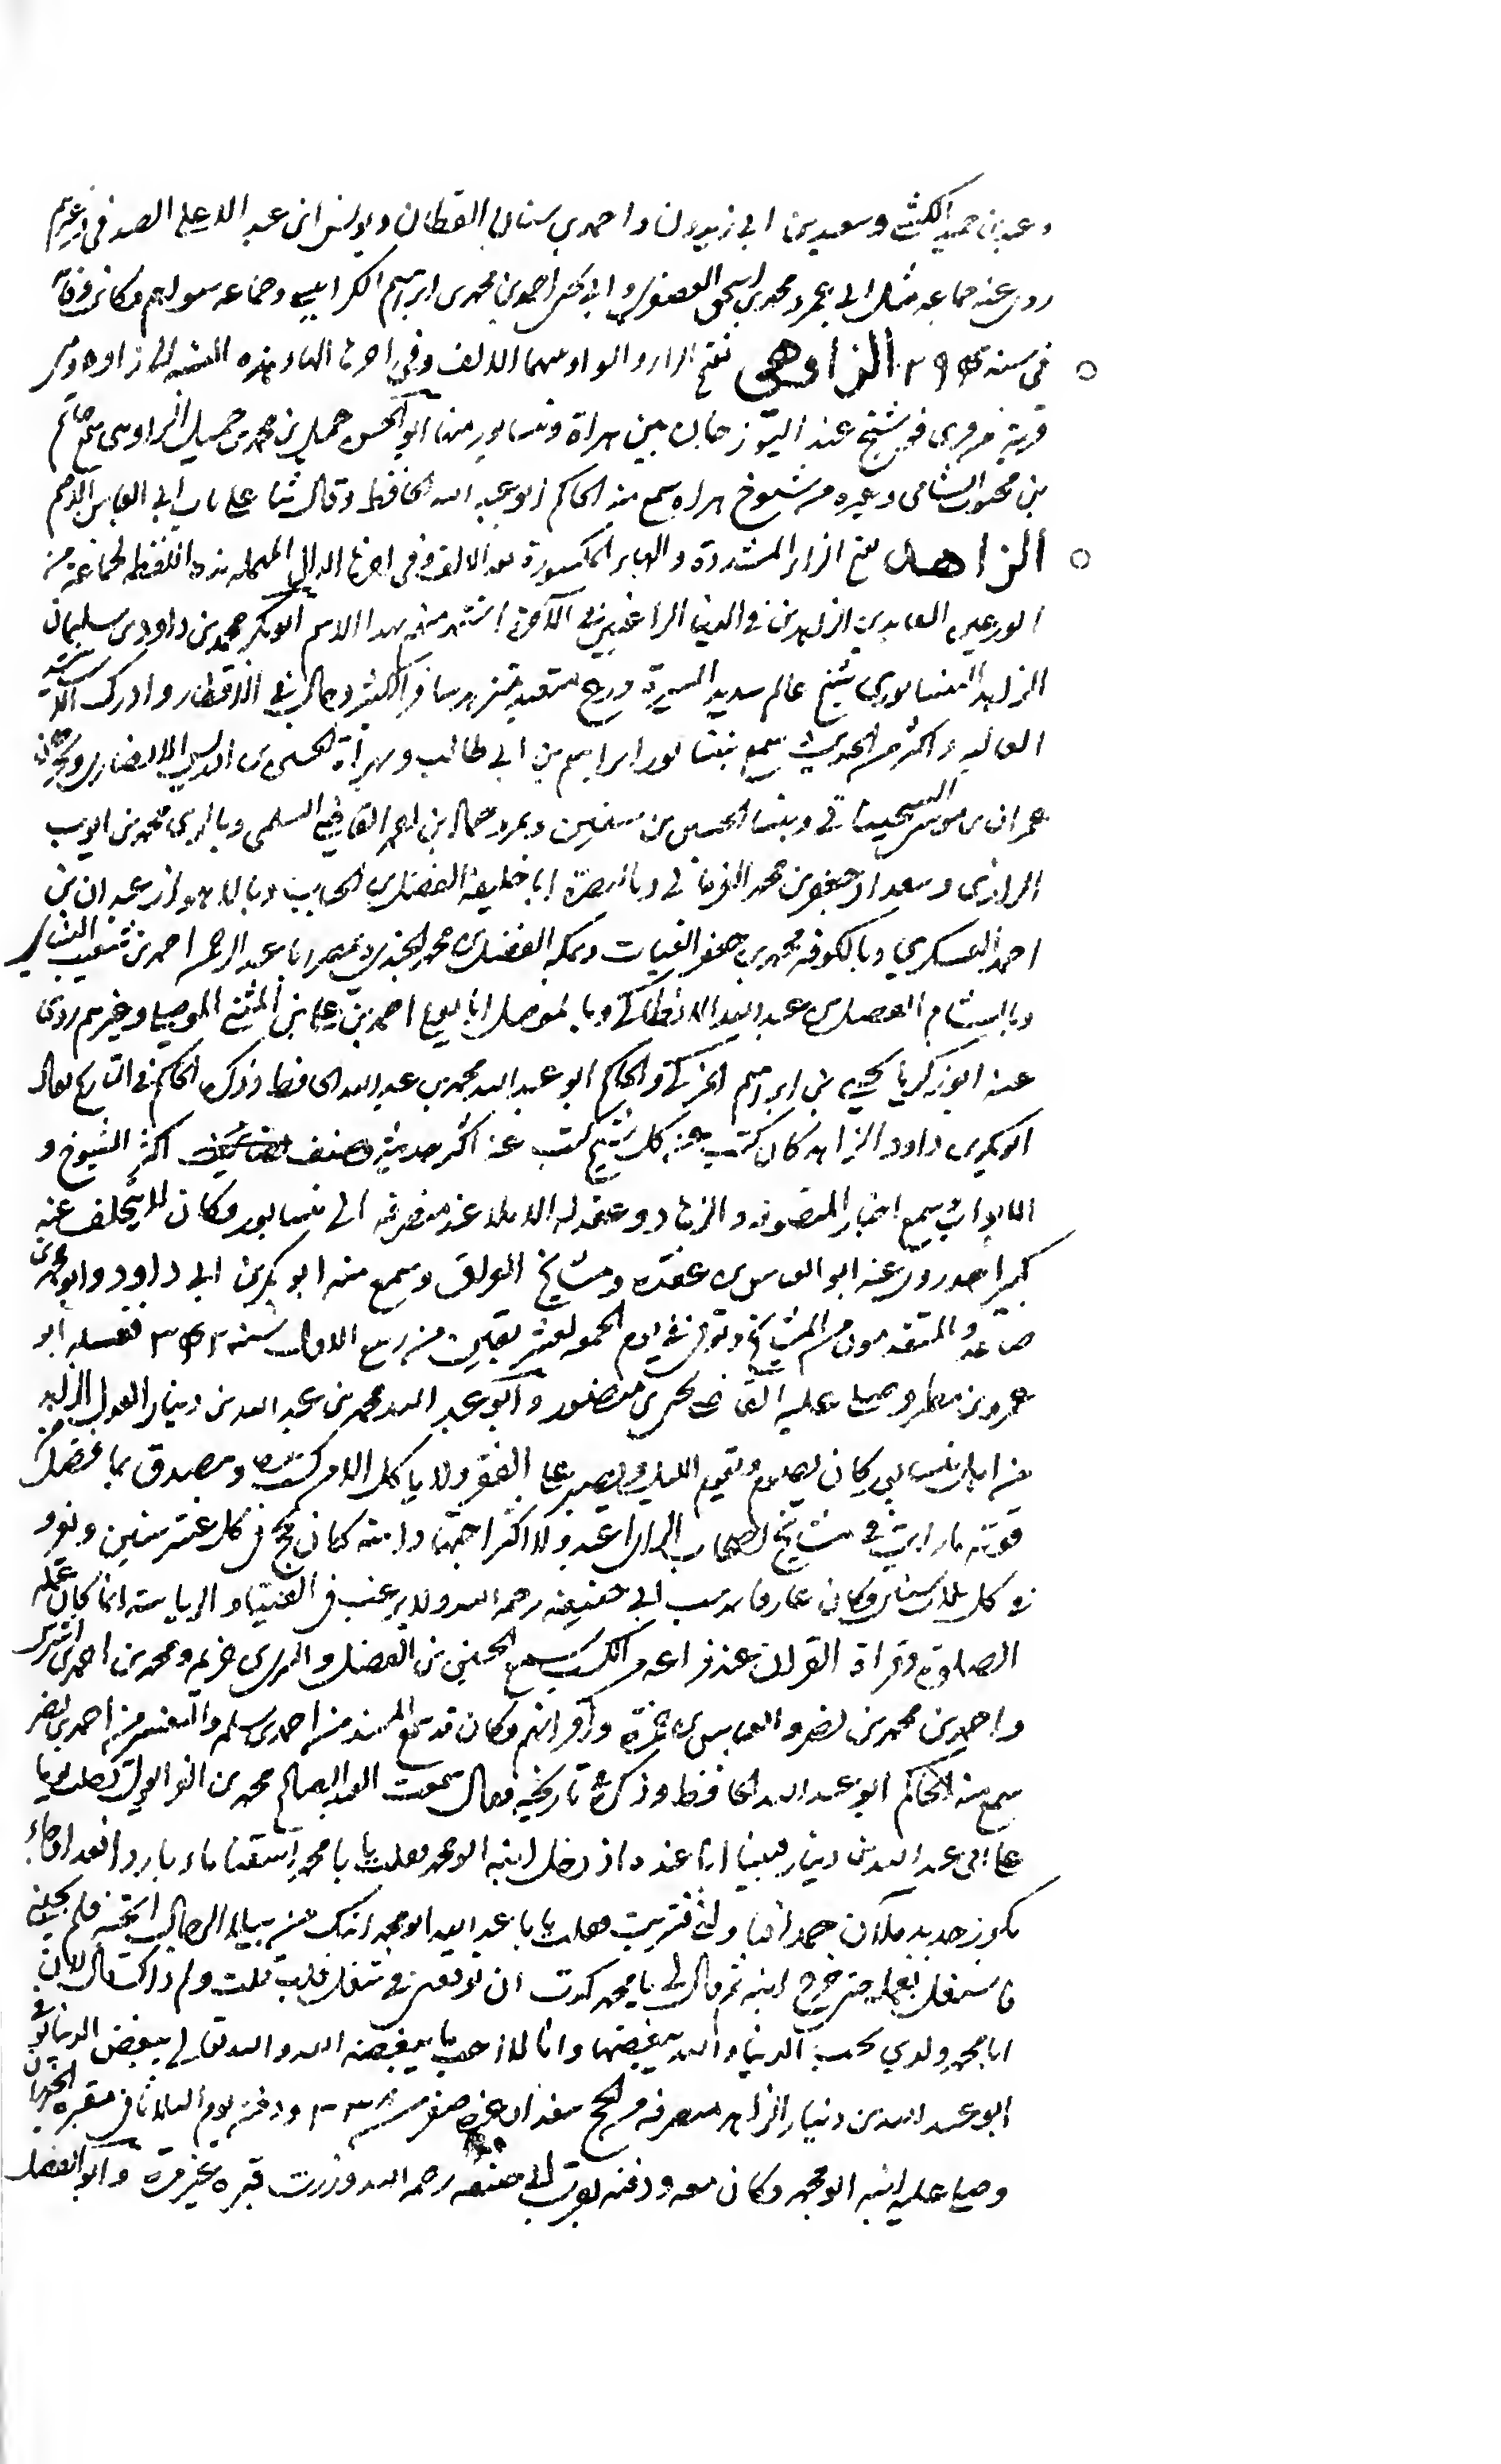 وعبد بن حميد الكشي وسعيد بن ابي زيدون واحمد بن سنان القطان ويونس ابن عبد الاعلى الصدفي وغيرهم
روى عنه جماعة مثل ابي عمرو محمد بن اسحق العصفري وابي بكر احمد بن محمد بن ابراهيم الكرابيسي وجماعة سواهم وكانت وفاته
في سنة الزاوهي بفتح الزاء والواو بينهما الالف وفي اخرها الهاء هذه النسبة الى زاوه وهي
قرية من قرى فوشنج عند البوزجان بين هراة ونيسابور منها ابو الحسن جميل بن محمد بن جميل الزاوهي سمع حاتم
بن محبوب الشامي وغيره من شيوخ هراه سمع منه الحاكم ابو عبد الله الحافظ وقال ثنا على باب ابي العباس الاصم
الزاهد بفتح الزاء المشددة والهاء المكسورة بعد الالف وفي اخرها الدال المهملة هذه اللفظة لجماعة من
الورعين العابدين الزاهدين في الدنيا الراغبين في الآخرة اشتهر منهم بهذا الاسم ابو بكر محمد بن داود بن سليمان
الزاهد النيسابوري شيخ عالم سديد السيرة ورع متعبد متزهد سافر الكثير وجال في الاقطار وادرك الاسانيد
العالية واكثر من الحديث سمع بنيسابور ابراهيم بن ابي طالب وبهراة الحسين بن ادريس الانصاري وبجرجان
عمران بن موسى السجستاني وبنسا الحسن بن سفين وبمرو حماد بن احمد القاضي السلمي وبالري محمد بن ايوب
الرازي وببغداد جعفر بن محمد الفريابي وبالبصرة ابا خليفة الفضل بن الحباب وبالاهواز عبدان بن
احمد العسكري وبالكوفة محمد بن جعفر القتات وبمكة المفضل بن محمد الجندي وبمصر ابا عبد الرحمن احمد بن شعيب النسائي
وبالشام الفضل بن عبد الله الانطاكي وبالموصل ابا يعلى احمد بن علي بن المثنى الموصلي وغيرهم روى
عنه ابو زكريا يحيى بن ابراهيم المزكي والحاكم ابو عبد الله محمد بن عبد الله الحافظ وذكره الحاكم في التاريخ فقال
ابو بكر بن داود الزاهد كان كتب عن كل شيخ كتب عنه اكثر حديثه وصنف اكثر الشيوخ و
الابواب سمع اخبار المتصوفة والزهاد وعقد له الاملاء عند منصرفه الى نيسابور وكان لا يتخلف عنه
كبير احد روى عنه ابو العباس بن عقدة ومشايخ العراق وسمع منه ابو بكر بن ابي داود وابو محمد بن
صاعد والمتقدمون من المشايخ وتوفي في يوم الجمعة لعشر بقين من ربيع الاول سنة فغسله ابو
عمرو بن مطر وصلى عليه القاضي يحيى بن منصور وابو عبد الله محمد بن عبد الله بن دينار العدل الزاهد
من اهل نيسابور كان يصوم ويقوم الليل ويصبر على الفقر ولا ياكل الا من كسب يده ويتصدق بما يفضل من
قوته ما رايت في مشايخ اصحاب الراي اعبد ولا اكثر اجتهادا منه كان يحج في كل عشر سنين ويغزو
في كل ثلاث سنين وكان عارفا بمذهب ابي حنيفة رحمه الله ولا يرغب في الفتيا والرياسة انما كان عمله
الصلوة وقراءة القران عند فراغه من الكسب سمع الحسين بن الفضل والسري بن خزيمة ومحمد بن احمد بن انس
واحمد بن محمد بن نصر والعباس بن حمزة واقرانهم وكان قد سمع المسند من احمد بن سلمة والتفسير من احمد بن نصر
سمع منه الحاكم ابو عبد الله الحافظ وذكره في تاريخه فقال سمعت العبد الصالح محمد بن يقول دخلت يوما
على ابي عبد الله بن دينار فبينا انا عنده اذ دخل ابنه ابو محمد فقلت يا ابا محمد اسقنا ماء باردا فغدا وجاء
بكوز جديد ملآن جمدا ولشي فشربت فقلت يا ابا عبد الله ابو محمد ابنك من بياة الرجال فلم يجبني
فاستغل بعمله حتى خرج ابنه ثم قال لي يا محمد كدت ان توقعني في شغل قلب قلت ولم ذاك قال لان
ابا محمد ولدي يحب الدنيا والله يبغضها وانا لا احب ما يبغضه الله والله تعالى يبغض الدنيا توفي
ابو عبد الله بن دينار الزاهد منصرفه من الحج ببغداد غرة صفر سنة ٣٣٨ ودفن يوم الثلاثاء في مقبرة الخيزران
وصلى عليه ابنه ابو محمد وكان معه ودفنه بقرب ابي حنيفة رحمه الله وزرت قبره غير مرة وابو الفضل